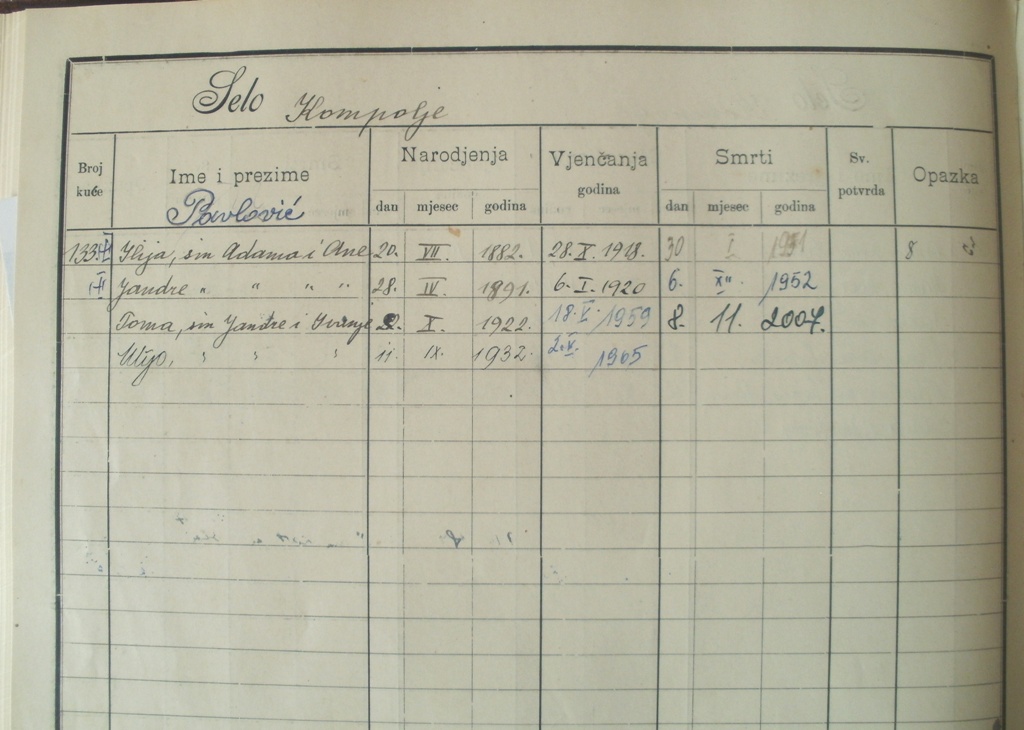 Selo Kompolje
Broj kuće Ime i prezime Narodjenja Vjenčanja Smrti Sv. potvrda Opazka
Pavlović dan mjesec godina godina dan mjesec godina
133 Ilija, sin Adama i Ane 20. VII. 1882. 28. X. 1918. 30 I 1951 8
Jandre " " " " 28. IV. 1891. 6. I. 1920 6. XII 1952
Toma, sin Jandre i Ivanje 2. X. 1922. 18. V. 1959 8. 11. 2007.
" " " 11. IX. 1932. 2. V. 1965